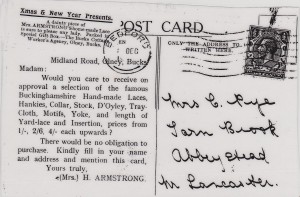 Xmas & New Year Presents.
A dainty piece of
Mrs. ARMSTRONG'S Hand-made Lace
is sure to please any lady. Packed
Special Gift Box—The Bucks
Worker's Agency, Olney, Bucks.
POST CARD
BEDFORD
DEC
ONLY THE ADDRESS TO
WRITTEN
Midland Road, Olney, Bucks
Madam:
Would you care to receive on
approval a selection of the famous
Buckinghamshire Hand-made Laces,
Hankies, Collar, Stock, D'Oyley, Tray
Cloth, Motifs, Yoke, and length of
Yard-lace and Insertion, prices from
1/-, 2/6, 4/- each upwards?
There would be no obligation to
purchase. Kindly fill in your name
and address and mention this card,
Yours truly,
(Mrs.) H. ARMSTRONG.
Mrs C. Pye
Tarn Brook
Abbeystead
Nr Lancaster.